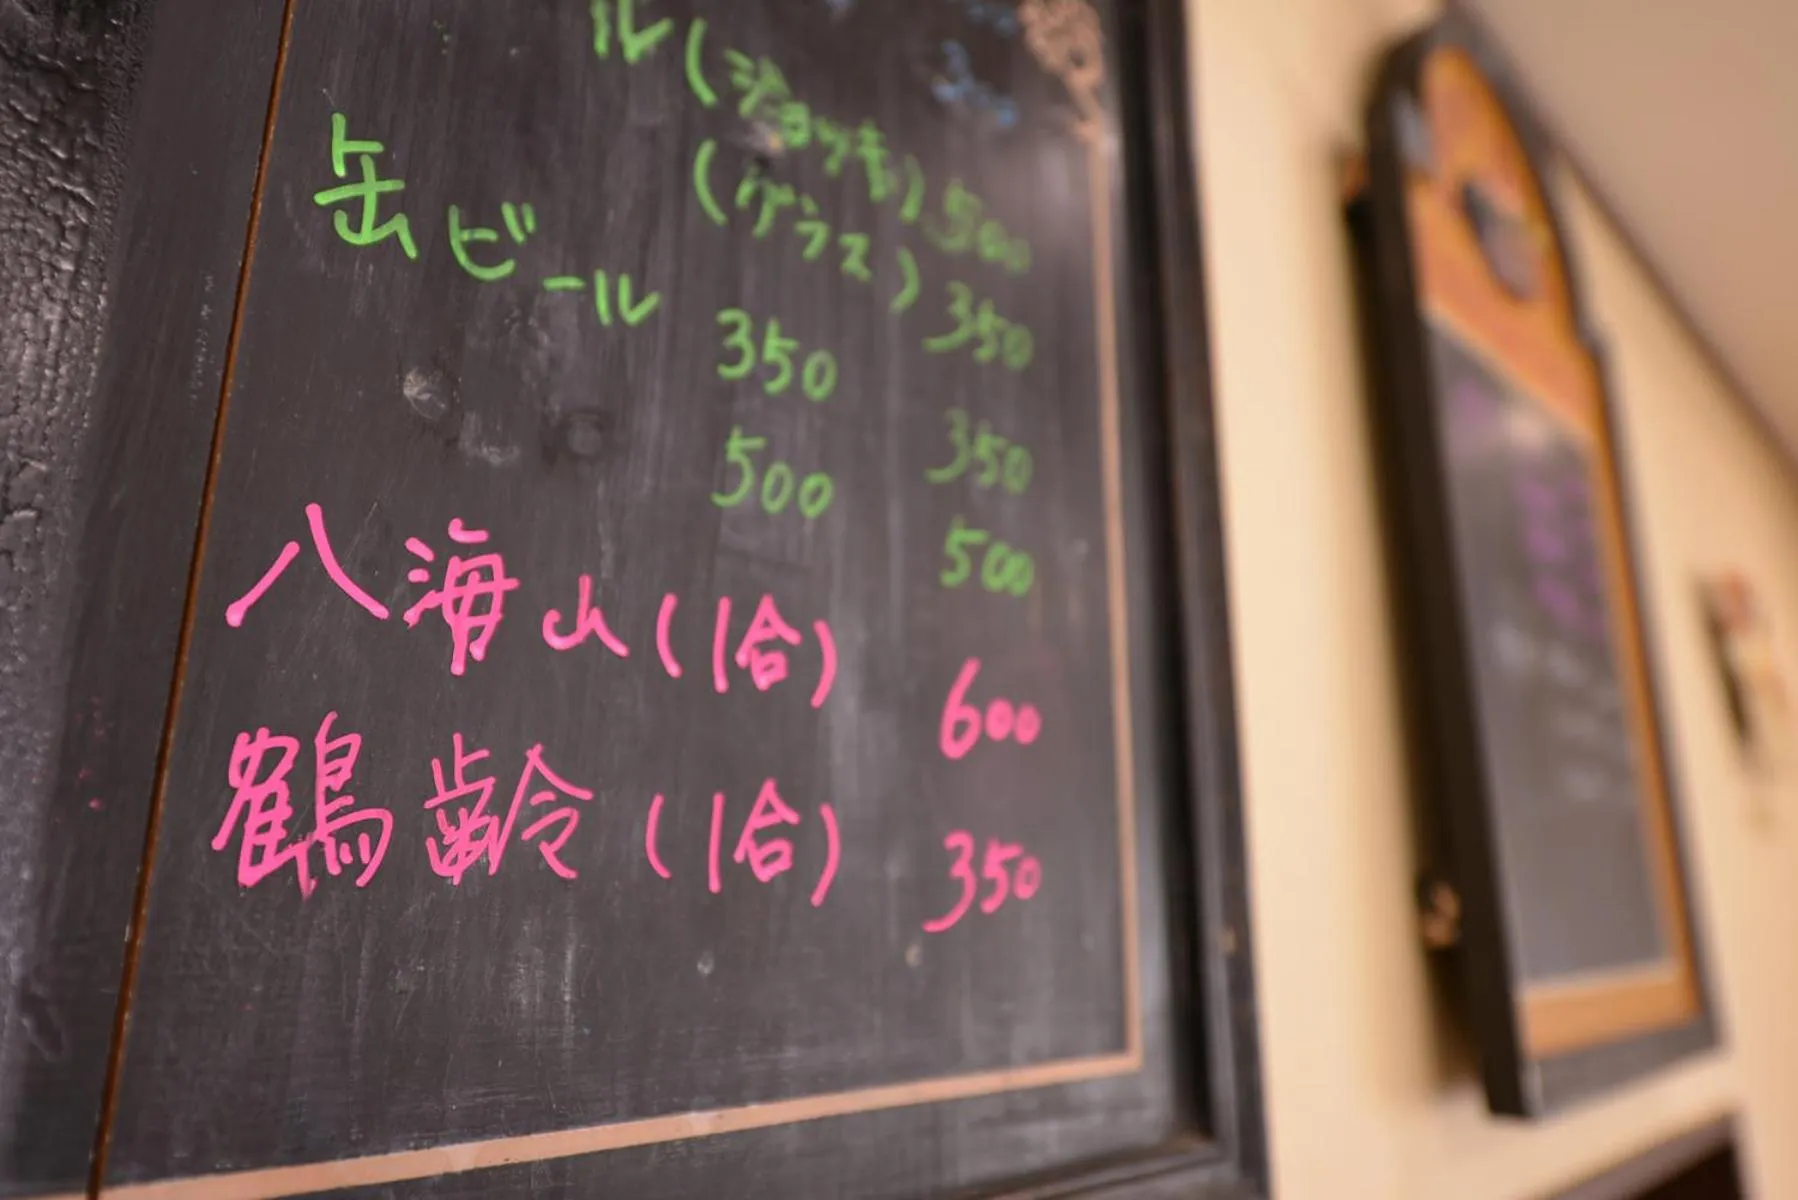 ル(ジョッキ) 500
(グラス) 350
缶ビール 350 350
500 500
八海山(1合) 600
鶴齢(1合) 350